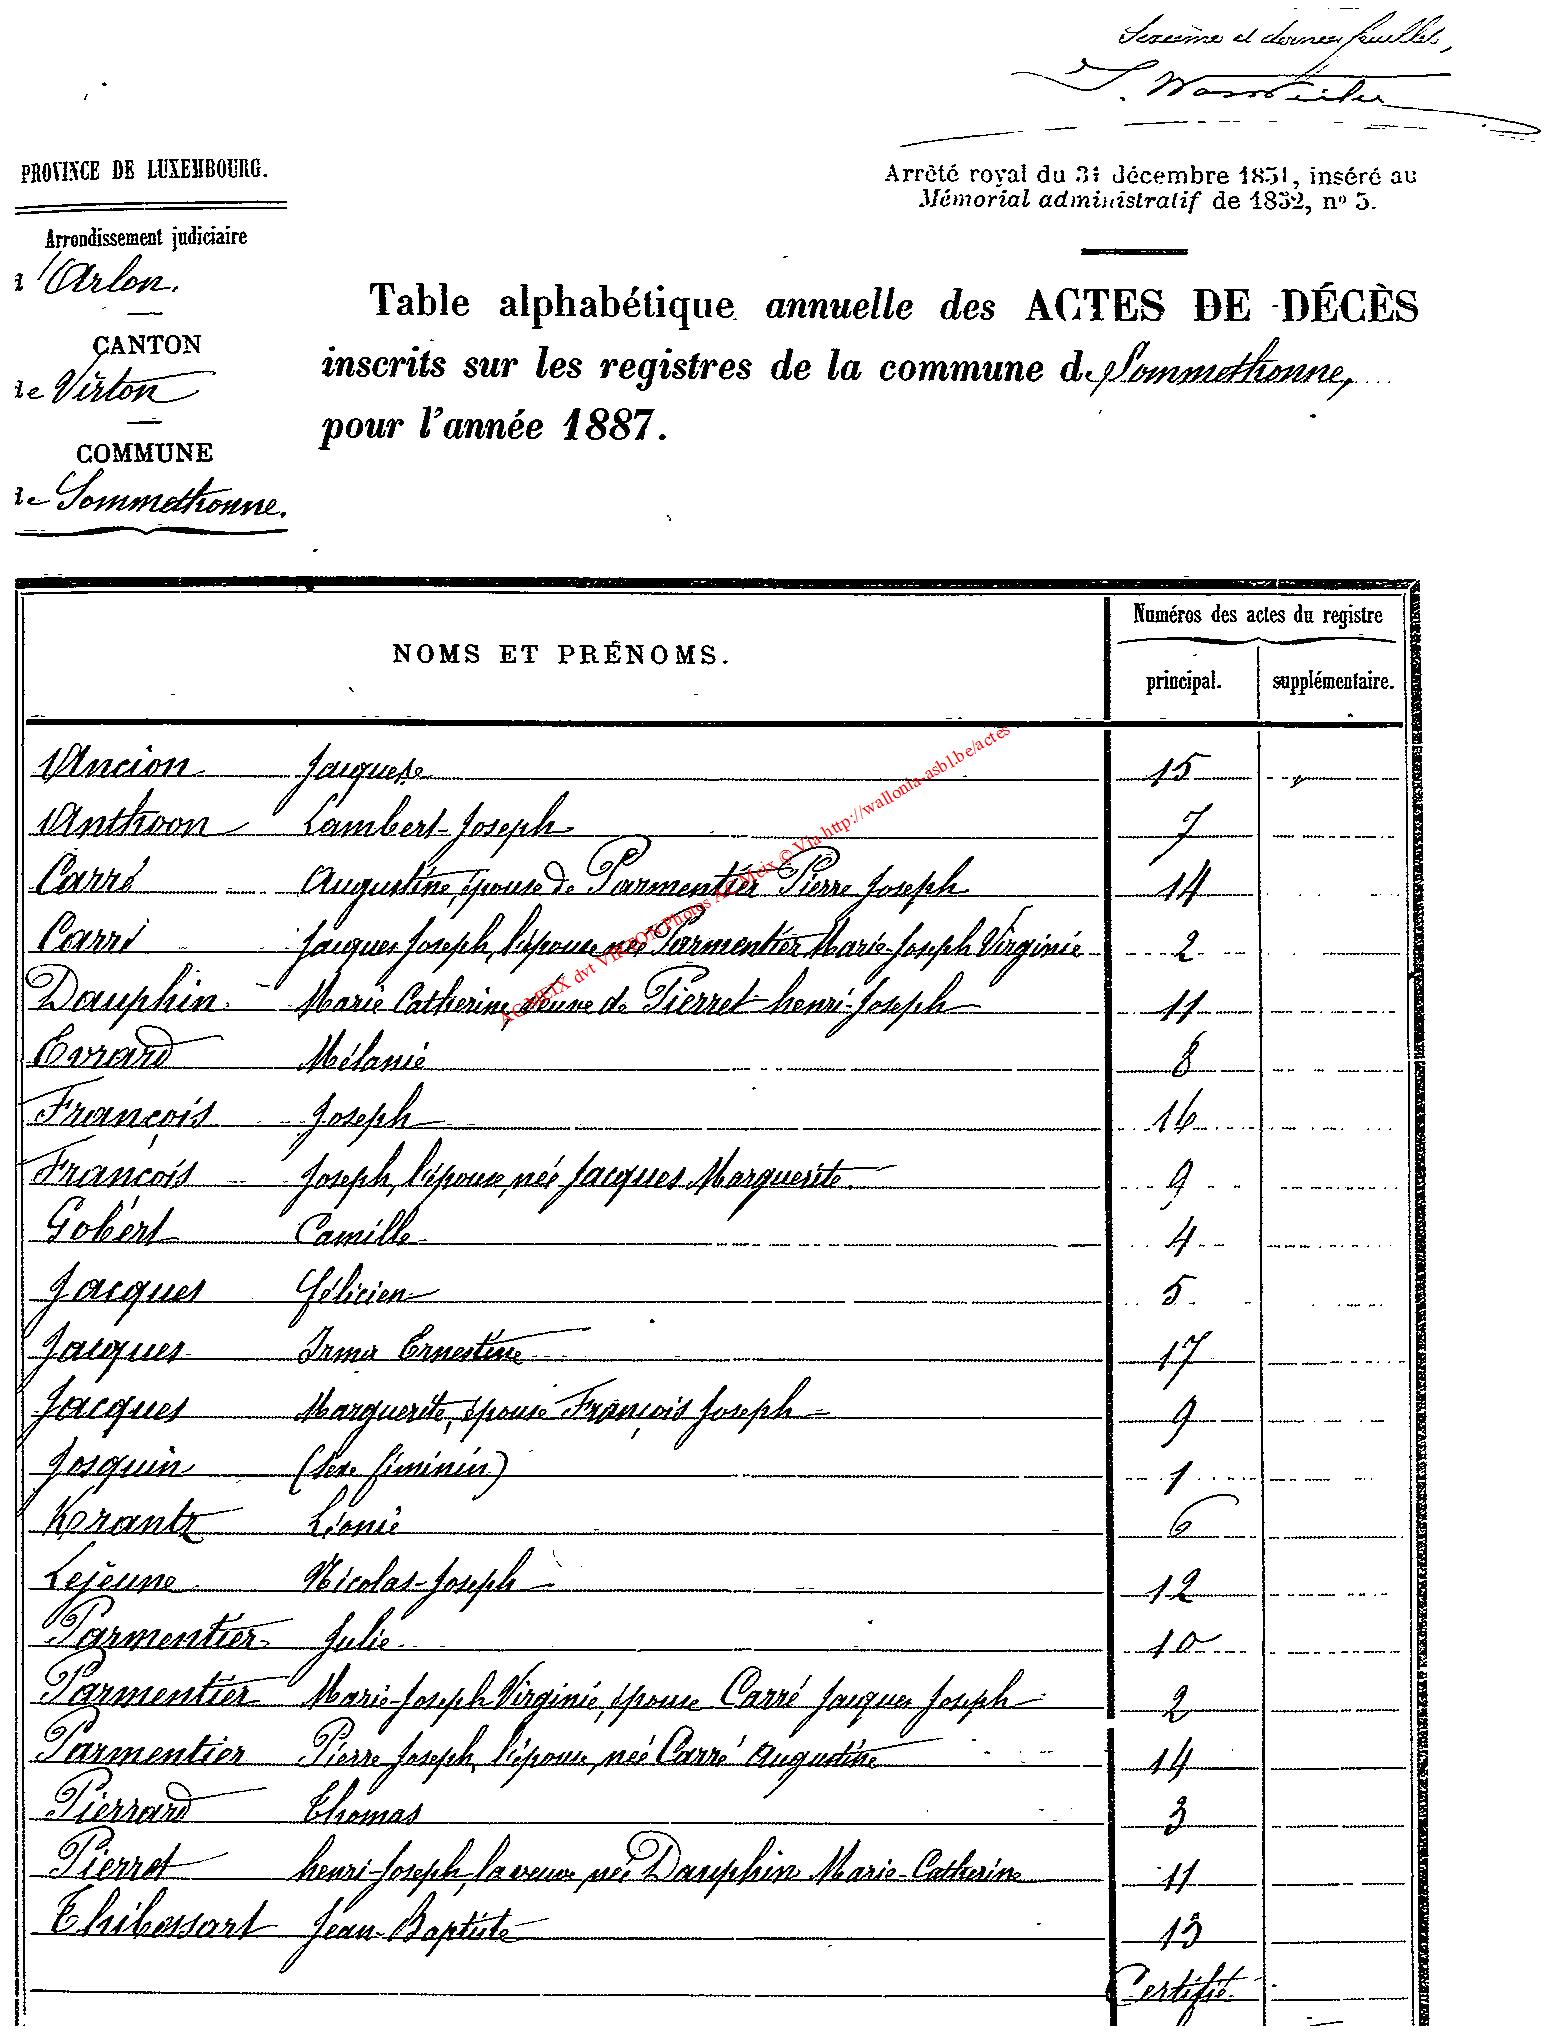 Sixième et dernier feuillet,
PROVINCE DE LUXEMBOURG.
Arrêté royal du 31 décembre 1831, inséré au
Mémorial administratif de 1832, nº 3.
Arrondissement judiciaire
d'Arlon.
CANTON
de Virton
COMMUNE
de Sommethonne.
Table alphabétique annuelle des ACTES DE DÉCÈS
inscrits sur les registres de la commune de Sommethonne,
pour l'année 1887.
NOMS ET PRÉNOMS.
Numéros des actes du registre
principal. supplémentaire.
Ancion Jacques 15 "
Anthoon Lambert-Joseph 7
Carré Augustine, épouse de Parmentier Pierre Joseph 14
Carré Jacques Joseph, l'épouse née Parmentier Marie-Joseph Virginie 2
Dauphin Marie Catherine veuve de Pierret henri-Joseph 11
Evrard Mélanie 8
François Joseph 16
François Joseph, l'épouse, née Jacques Marguerite 9
Gobert Camille 4
Jacques Félicien 5
Jacques Irma Ernestine 17
Jacques Marguerite, épouse François Joseph 9
Josquin (sexe féminin) 1
Krantz Léonie 6
Lejeune Nicolas-Joseph 12
Parmentier Julie 10
Parmentier Marie-Joseph Virginie, épouse Carré Jacques Joseph 2
Parmentier Pierre Joseph, l'épouse, née Carré Augustine 14
Pierrard Thomas 3
Pierret henri-Joseph, la veuve, née Dauphin Marie-Catherine 11
Thibessart Jean-Baptiste 13
Certifié
AC MEIX dvt VIRTON Photos AC Meix © Via http://wallonia-asbl.be/actes